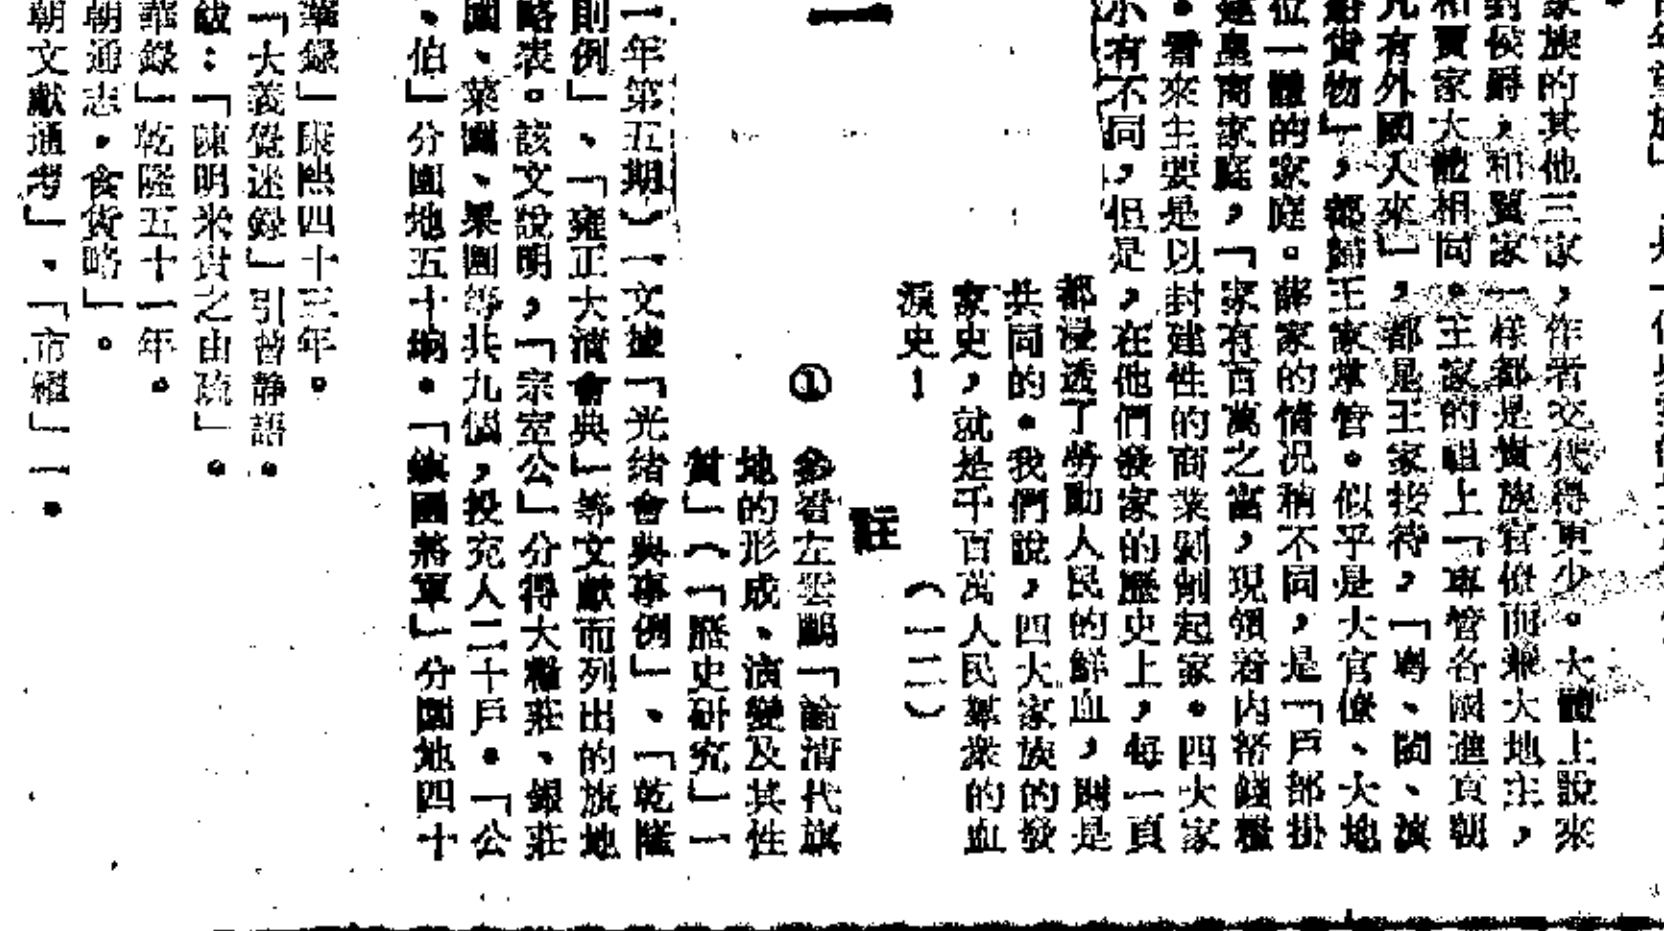 家族的其他三家，作者交代得更少。大體上說來
封侯爵，和賈家一樣都是貴族官僚而兼大地主，
和賈家大體相同。王家的祖上「專管各國進貢朝
凡有外國人來」，都是王家接待，「粵、閩、滇
貨物」，都歸王家掌管。似乎是大官僚、大地
位一體的家庭。薛家的情况稍不同，是「戶部掛
皇商家庭，「家有百萬之富，現領着內帑錢糧
。看來主要是以封建性的商業剝削起家。四大家
小有不同，但是，在他們發家的歷史上，每一頁
都浸透了勞動人民的鮮血，則是
共同的。我們說，四大家族的發
家史，就是千百萬人民羣衆的血
淚史！
（一二）
註
① 參看左雲鵬「論清代旗
地的形成、演變及其性
質」（「歷史研究」一
一年第五期）一文據「光緒會典事例」、「乾隆
則例」、「雍正大清會典」等文獻而列出的旗地
略表。該文說明，「宗室公」分得大糧莊、銀莊
園、菜園、果園等共九個，投充人二十戶。「公
、伯」分園地五十垧。「鎮國將軍」分園地四十
華錄」康熙四十三年。
「大義覺迷錄」引曾静語。
：「陳明米貴之由疏」。
華錄」乾隆五十一年。
朝通志，食貨略」。
朝文獻通考」、「市糴」一。